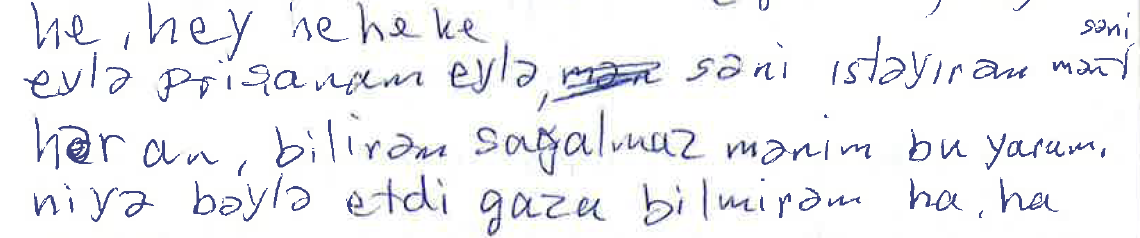 he, hey he he ke
səni
eylə prişanam eylə, səni istəyirəm məni
hər an, bilirəm sağalmaz mənim bu yaram,
niyə bəylə etdi gaza bilmirəm ha, ha